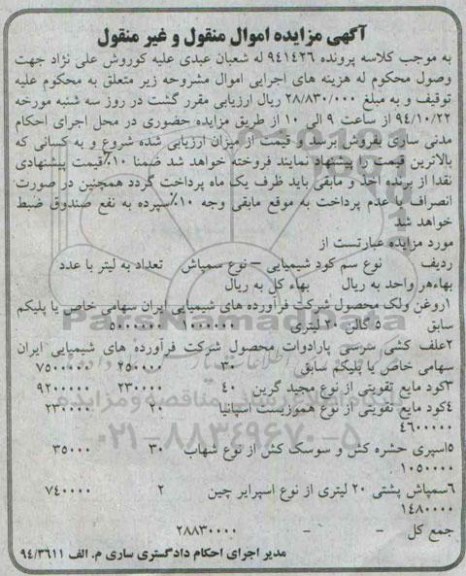 آگهی مزایده اموال منقول و غیر منقول
به موجب کلاسه پرونده ۹۴۱۴۲۶ له شعبان عبدی علیه کوروش علی نژاد جهت
وصول محکوم له هزینه های اجرایی اموال مشروحه زیر متعلق به محکوم علیه
توقیف و به مبلغ ۲۸/۸۳۰/۰۰۰ ریال ارزیابی مقرر گشت در روز سه شنبه مورخه
۹۴/۱۰/۲۲ از ساعت ۹ الی ۱۰ از طریق مزایده حضوری در محل اجرای احکام
مدنی ساری بفروش برسد و قیمت از میزان ارزیابی شده شروع و به کسانی که
بالاترین قیمت را پیشنهاد نمایند فروخته خواهد شد ضمنا ۱۰٪قیمت پیشنهادی
نقدا از برنده اخذ و مابقی باید ظرف یک ماه پرداخت گردد همچنین در صورت
انصراف یا عدم پرداخت به موقع مابقی وجه ۱۰٪سپرده به نفع صندوق ضبط
خواهد شد
مورد مزایده عبارتست از
ردیف نوع سم کود شیمیایی – نوع سمپاش تعداد به لیتر یا عدد
بهاءهر واحد به ریال بهاء کل به ریال
۱روغن ولک محصول شرکت فرآورده های شیمیایی ایران سهامی خاص یا پلیکم
سابق ۵ گالن ۲۰ لیتری ۱۰۰۰۰۰۰ ۵۰۰۰۰۰۰
۲علف کشی سرسی پارادوات محصول شرکت فرآورده های شیمیایی ایران
سهامی خاص یا پلیکم سابق ۳۰ ۲۵۰۰۰۰ ۷۵۰۰۰۰۰
۳کود مایع تقویتی از نوع مجید گرین ۴۰ ۲۳۰۰۰۰ ۹۲۰۰۰۰۰
۴کود مایع تقویتی از نوع هموزیست اسپانیا ۲۰ ۲۳۰۰۰۰
۴۶۰۰۰۰۰
۵اسپری حشره کش و سوسک کش از نوع شهاب ۳۰ ۳۵۰۰۰
۱۰۵۰۰۰۰
۶سمپاش پشتی ۲۰ لیتری از نوع اسپرایر چین ۲ ۷۴۰۰۰۰
۱۴۸۰۰۰۰
جمع کل - - ۲۸۸۳۰۰۰۰
مدیر اجرای احکام دادگستری ساری م. الف ۹۴/۳۶۱۱
ParsNamadData
۰۲۱-۸۸۳۴۹۶۷۰-۵